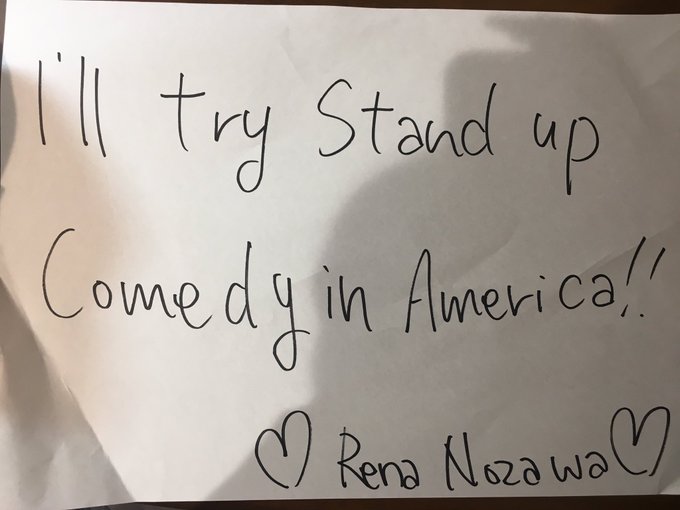 I'll try Stand up
Comedy in America!!
♡ Rena Nozawa ♡